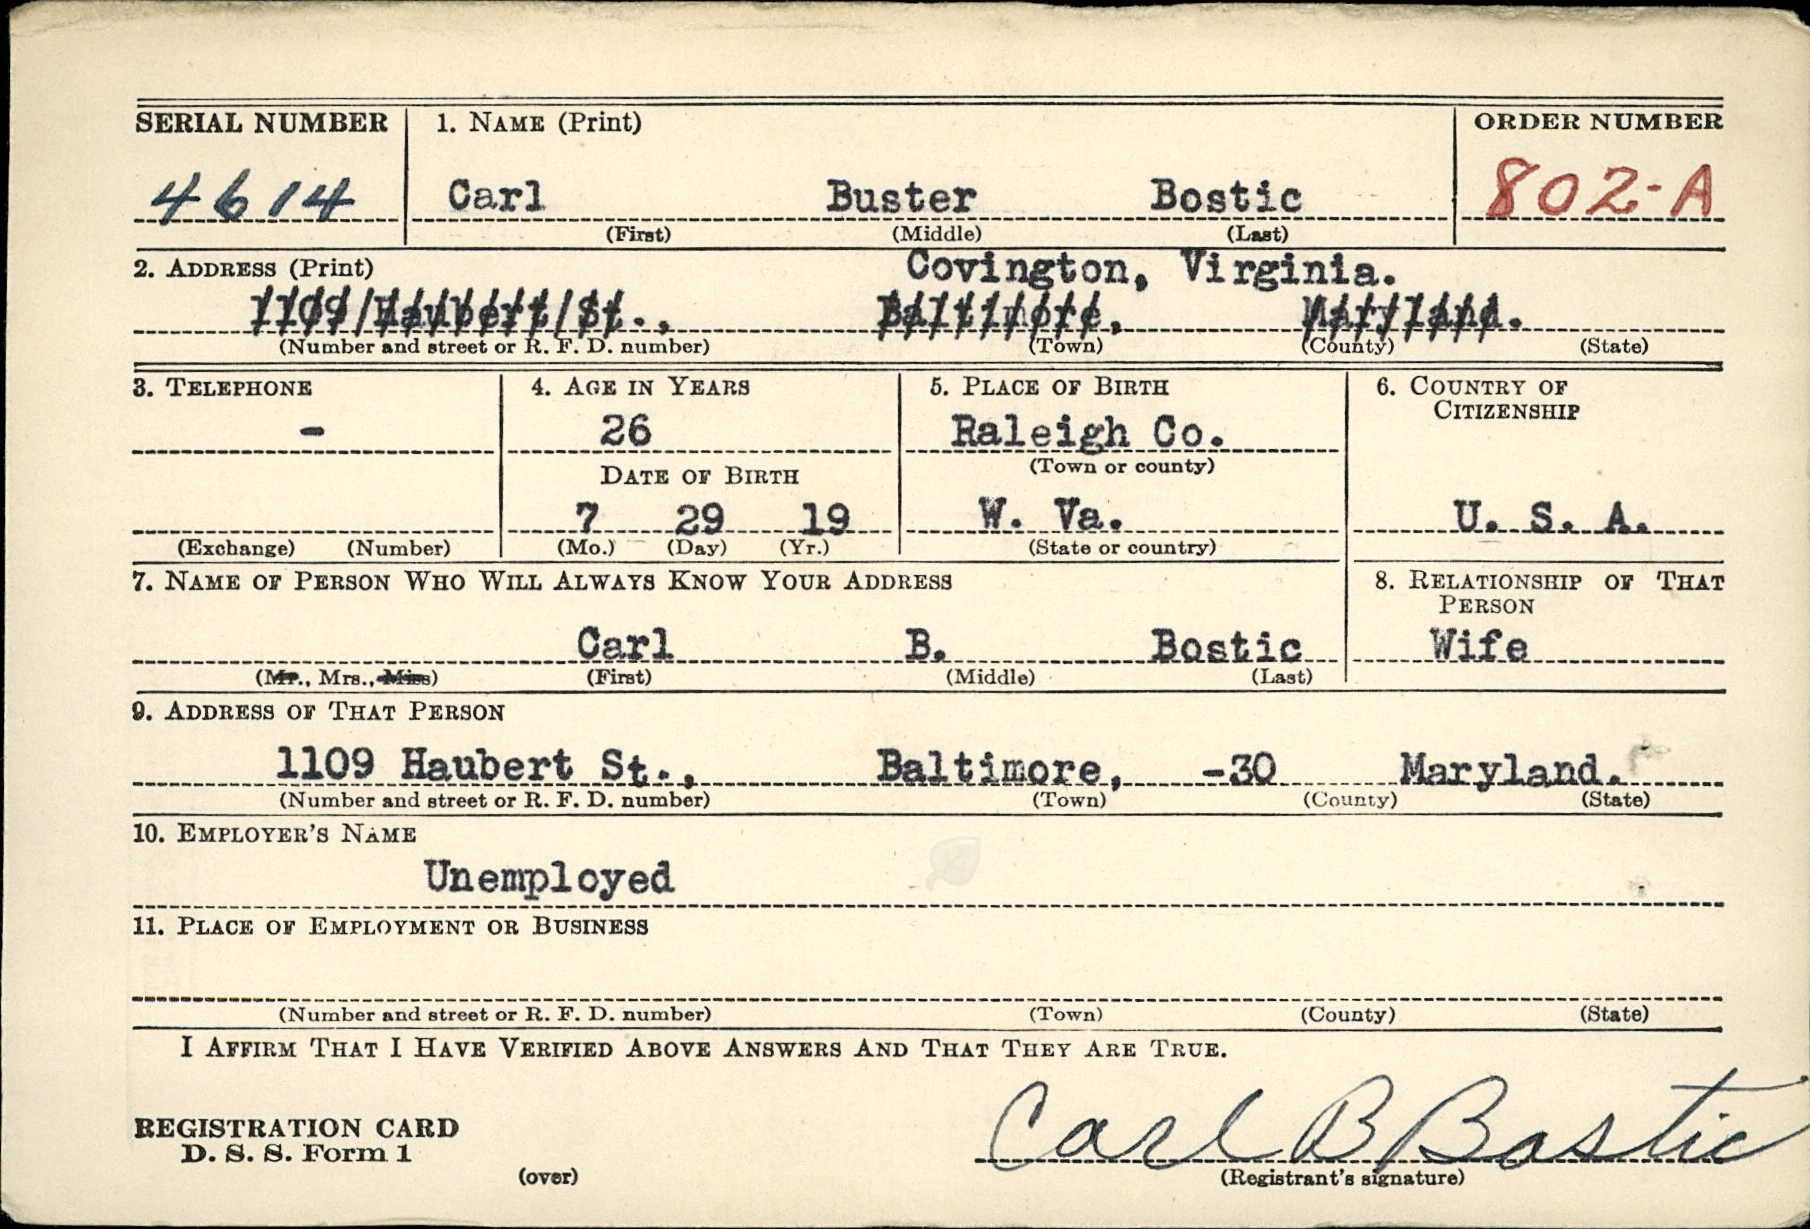 SERIAL NUMBER 1. NAME (Print) ORDER NUMBER
4614 Carl Buster Bostic 802-A
(First) (Middle) (Last)
2. ADDRESS (Print) Covington, Virginia.
1109 Haubert St., Baltimore, Maryland.
(Number and street or R. F. D. number) (Town) (County) (State)
3. TELEPHONE 4. AGE IN YEARS 5. PLACE OF BIRTH 6. COUNTRY OF
CITIZENSHIP
- 26 Raleigh Co.
DATE OF BIRTH (Town or county)
7 29 19 W. Va. U. S. A.
(Exchange) (Number) (Mo.) (Day) (Yr.) (State or country)
7. NAME OF PERSON WHO WILL ALWAYS KNOW YOUR ADDRESS 8. RELATIONSHIP OF THAT
PERSON
Carl B. Bostic Wife
(Mr., Mrs., Miss) (First) (Middle) (Last)
9. ADDRESS OF THAT PERSON
1109 Haubert St., Baltimore, -30 Maryland.
(Number and street or R. F. D. number) (Town) (County) (State)
10. EMPLOYER'S NAME
Unemployed
11. PLACE OF EMPLOYMENT OR BUSINESS
(Number and street or R. F. D. number) (Town) (County) (State)
I AFFIRM THAT I HAVE VERIFIED ABOVE ANSWERS AND THAT THEY ARE TRUE.
REGISTRATION CARD
D. S. S. Form 1 Carl B Bostic
(over) (Registrant's signature)